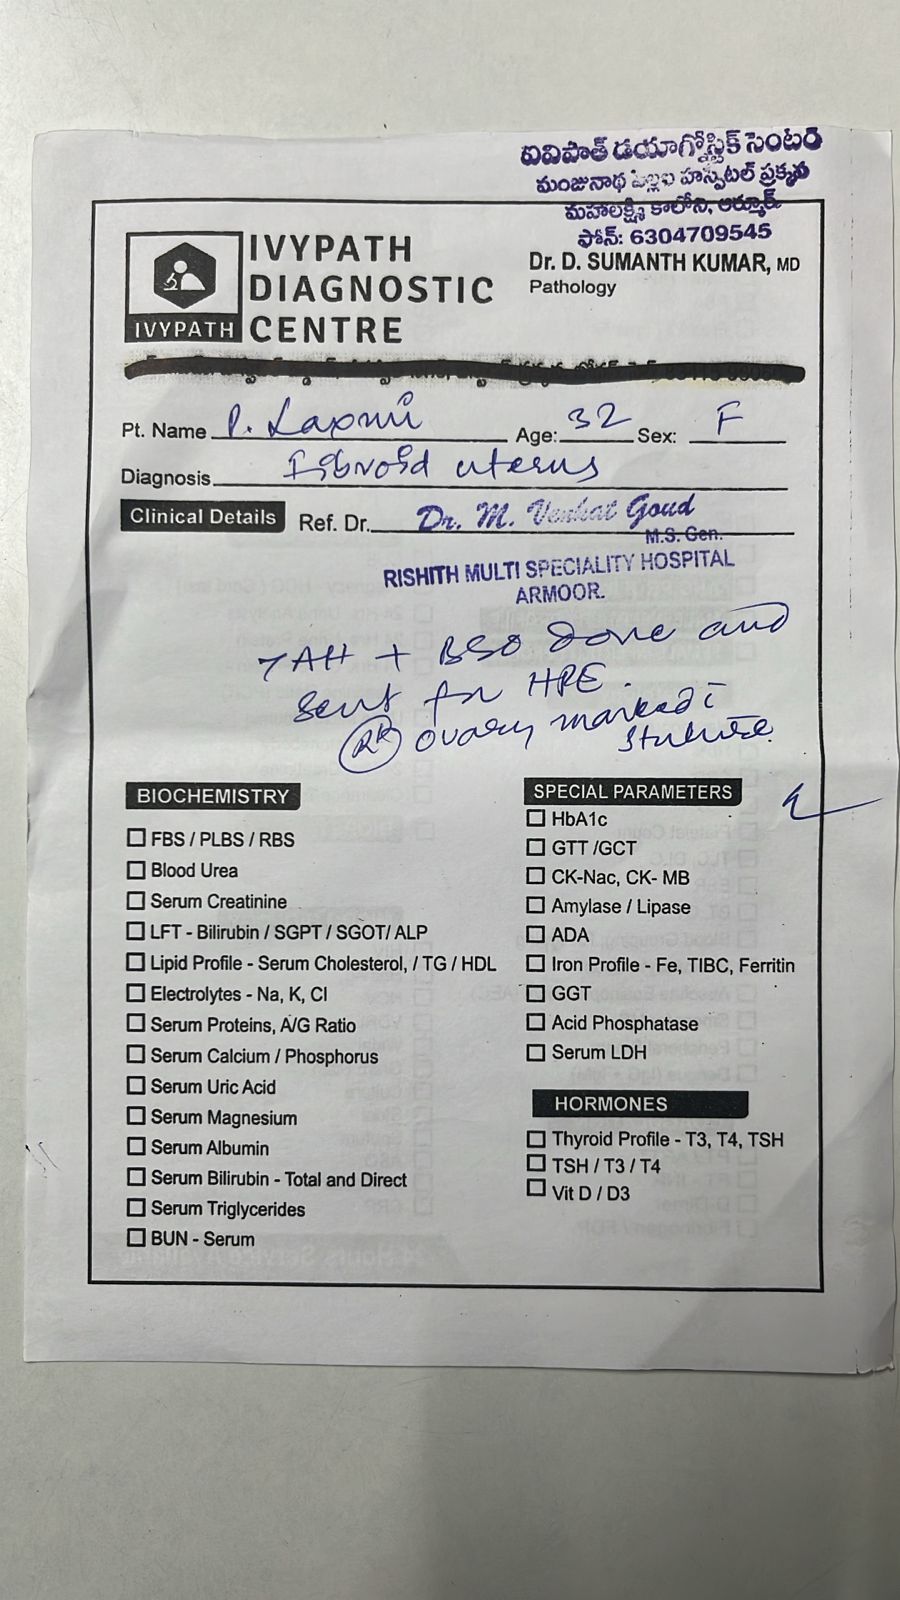 ఐవిపాత్ డయాగ్నోస్టిక్ సెంటర్
మంజునాథ పిల్లల హస్పిటల్ ప్రక్కన
మహాలక్ష్మి కాలోని, ఆర్మూర్.
ఫోన్: 6304709545
IVYPATH
IVYPATH
DIAGNOSTIC
CENTRE
Dr. D. SUMANTH KUMAR, MD
Pathology
Pt. Name P. Laxmi Age: 32 Sex: F
Diagnosis Fibroid uterus
Clinical Details Ref. Dr. Dr. M. Venkat Goud
M.S. Gen.
RISHITH MULTI SPECIALITY HOSPITAL
ARMOOR.
TAH + BSO done and
sent for HPE.
Rt ovary marked c̄
suture
BIOCHEMISTRY
FBS / PLBS / RBS
Blood Urea
Serum Creatinine
LFT - Bilirubin / SGPT / SGOT/ ALP
Lipid Profile - Serum Cholesterol, / TG / HDL
Electrolytes - Na, K, Cl
Serum Proteins, A/G Ratio
Serum Calcium / Phosphorus
Serum Uric Acid
Serum Magnesium
Serum Albumin
Serum Bilirubin - Total and Direct
Serum Triglycerides
BUN - Serum
SPECIAL PARAMETERS
HbA1c
GTT /GCT
CK-Nac, CK- MB
Amylase / Lipase
ADA
Iron Profile - Fe, TIBC, Ferritin
GGT
Acid Phosphatase
Serum LDH
HORMONES
Thyroid Profile - T3, T4, TSH
TSH / T3 / T4
Vit D / D3